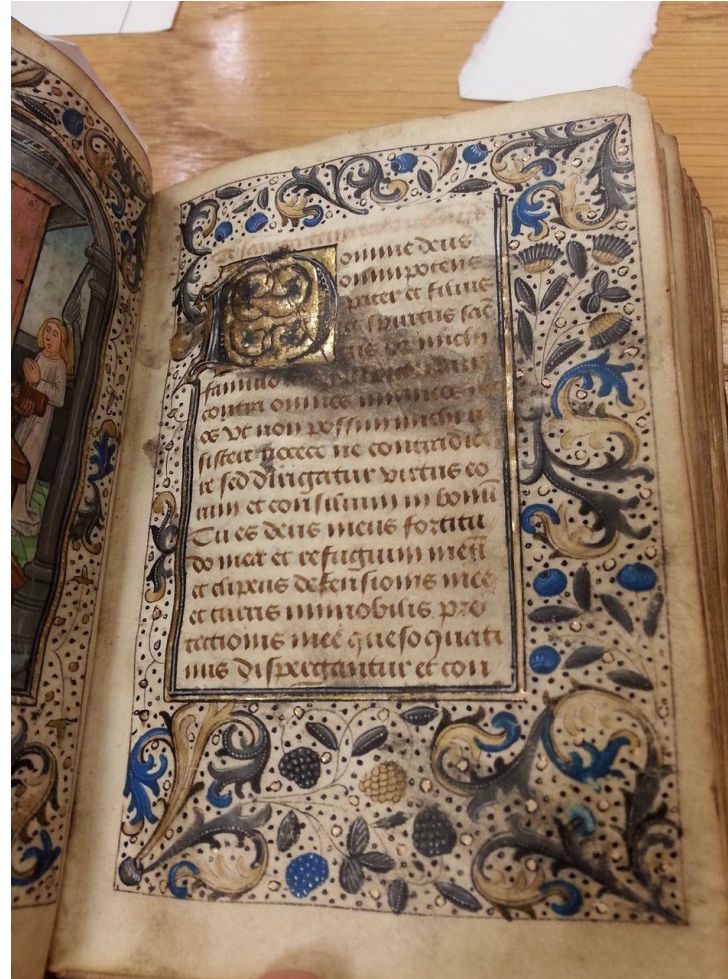 Domine deus
omnipotens
pater et filius
et spiritus sāc
da michi
famulo
contra omnes inimicos
os vt non possint michi
sistere necece ne contradice
re sed dirigatur virtus eo
rum et consilium in bonū
Tu es deus meus fortitu
do mea et refugium meū
et clipeus defensionis mee
et turris immobilis pro
tectionis mee queso quati
nus dispergantur et con